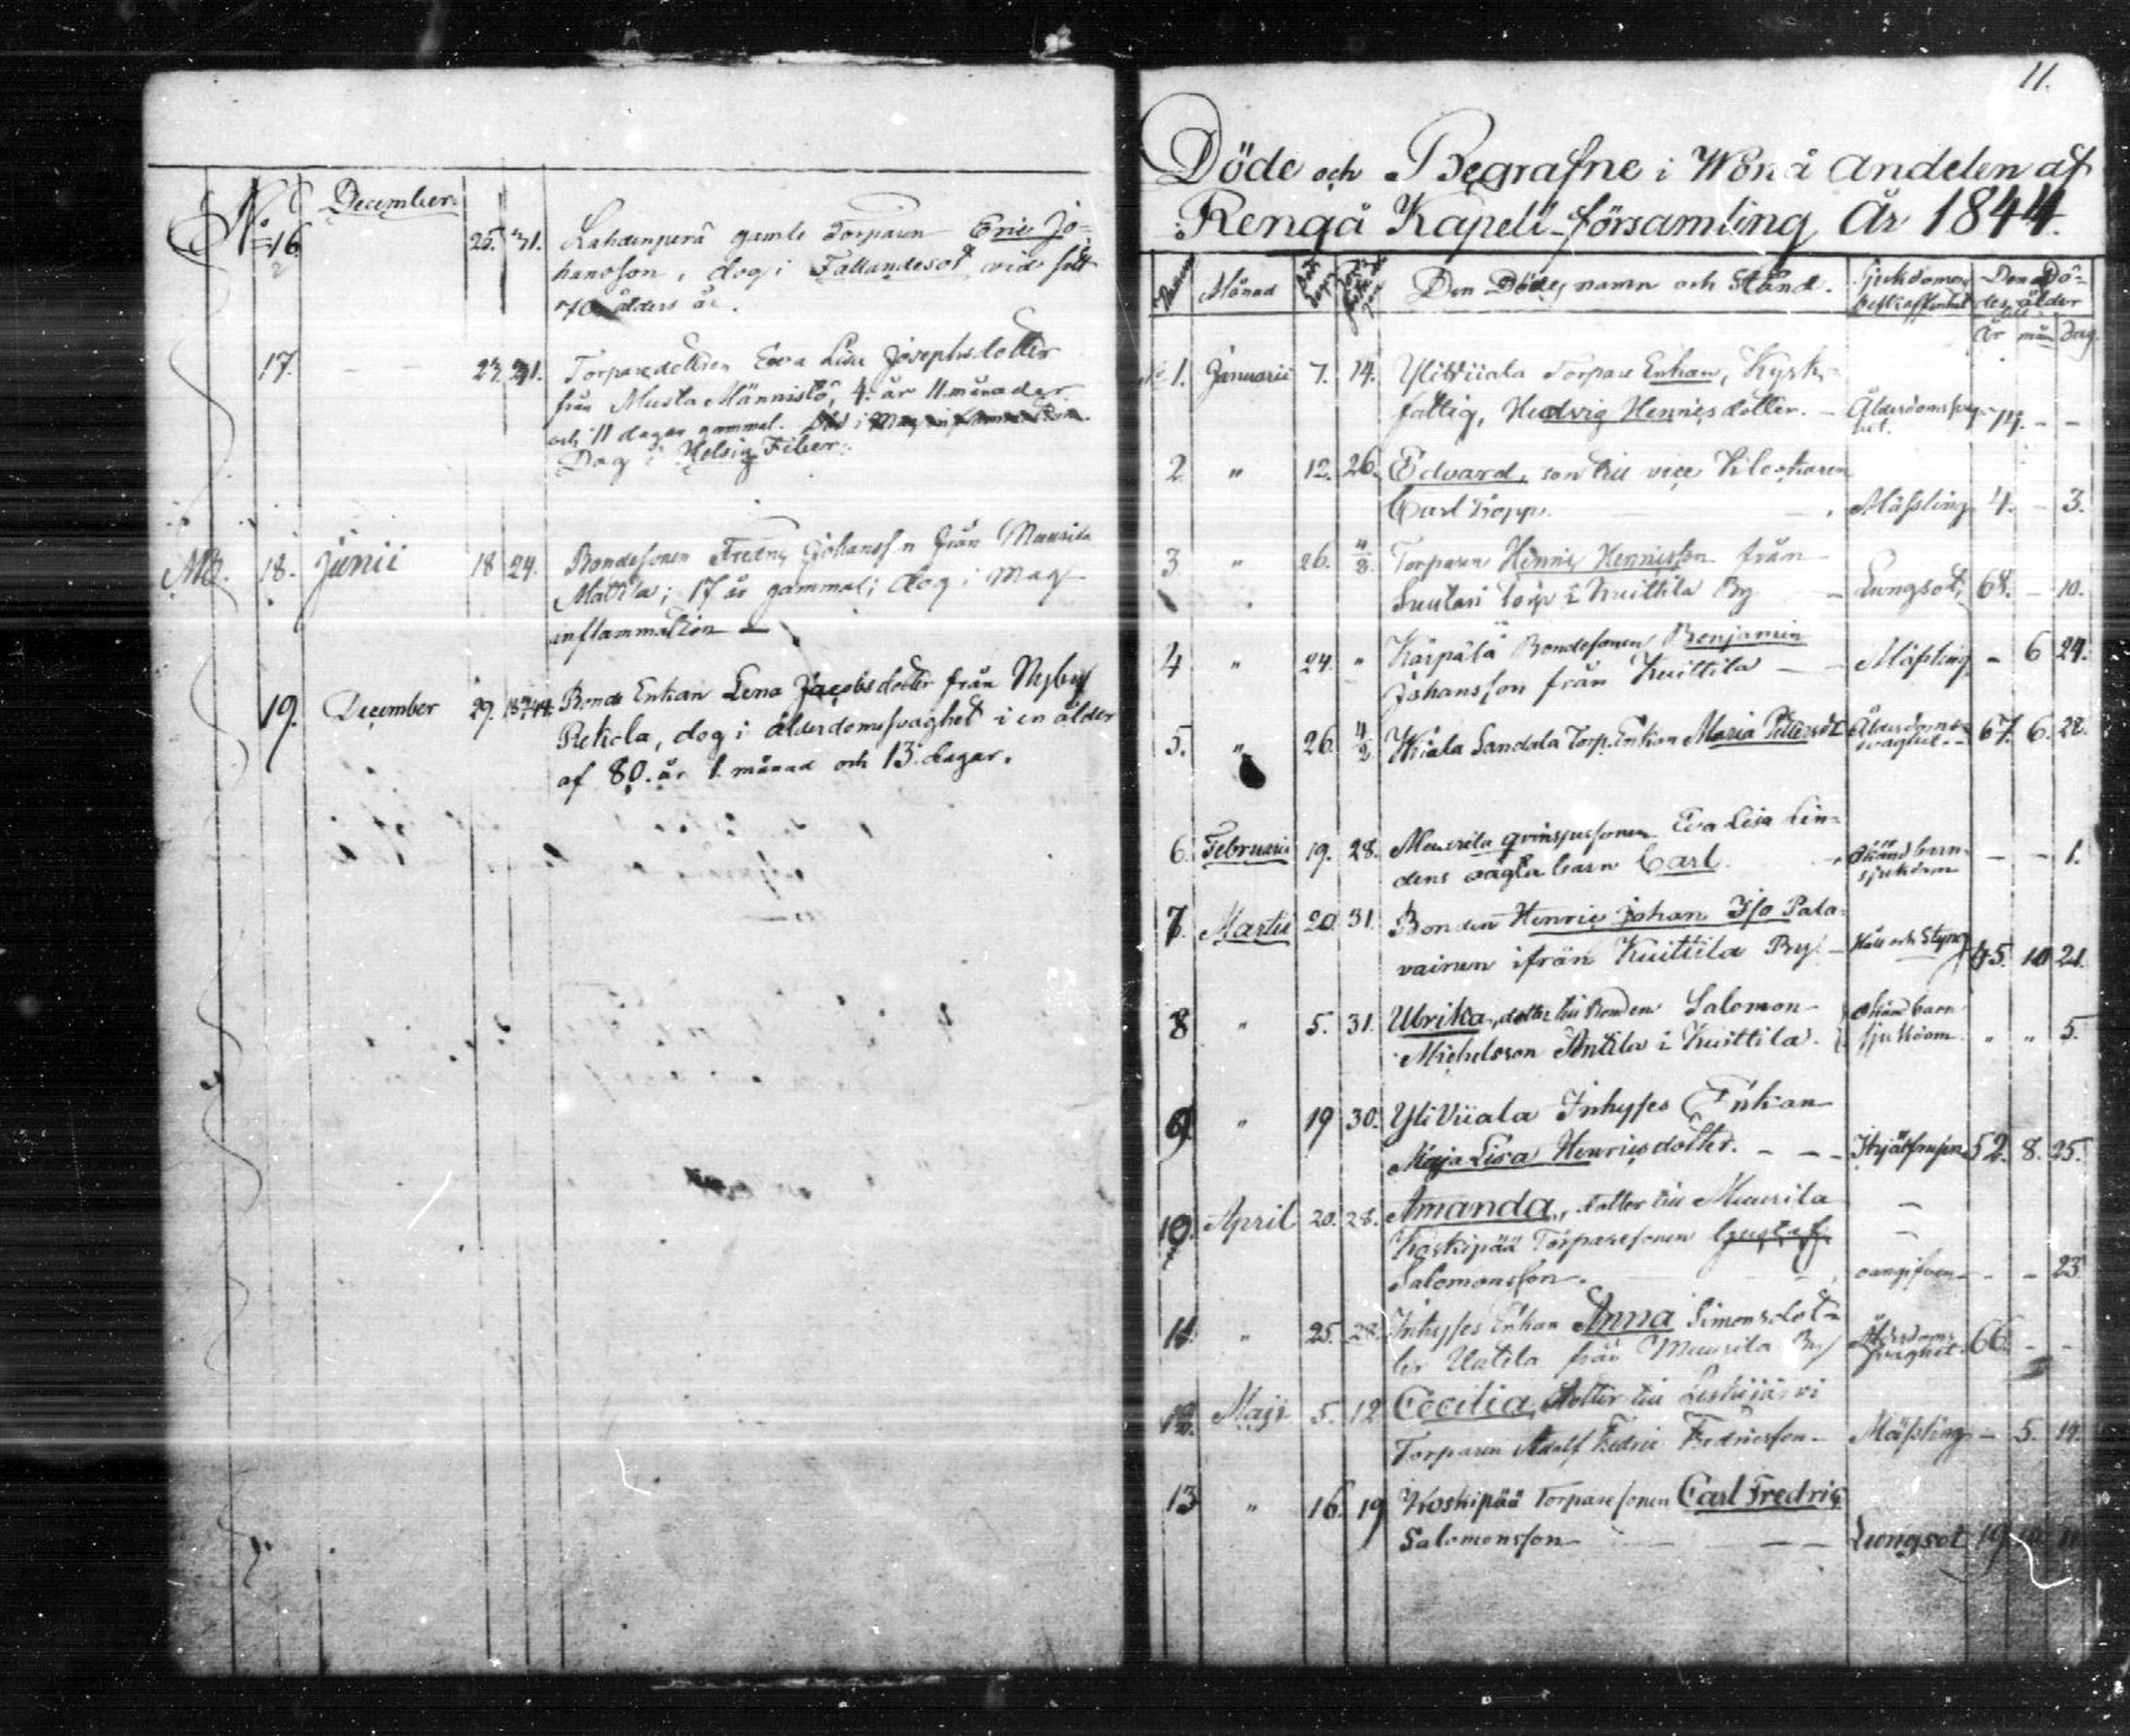 No December
16. 25. 31. Lahdenperä gamle Torparen Eric Jo-
hansson, dog i Fallandesot vid fyllt
70 ålders år.
17. — — 27. 31. Torparedottren Eva Lisa Josephsdotter
från Musta Männistö, 4. år 11. månader
och 11 dagar gammal.
Dog i Helsing Feber.
18. Junii 18 24. Bondesonen Fredric Johansson från Muurila
Mattila; 17 år gammal; dog i Mag-
inflammation —
19. December 29. Bonde Enkan Lena Jacobsdotter från Nyby
Rekola, dog i ålderdomssvaghet i en ålder
af 80. år 1. månad och 13. dagar.
11.
Döde och Begrafne i Wånå andelen af
Rengå Kapell-församling År 1844.
Månad Den Dödes namn och Stånd. Sjukdomens Den Dö-
beskaffenhet des ålder
år mån Dag.
No 1. Januarii 7. 14. Ylittiiala Torpare Enkan, Kyrk-
fattig, Hedvig Henricsdotter. — Ålderdomssvag-
het. 74. - -
2 " 12. 26. Edvard, son till vice
Carl Kopp. Mässling 4. - 3.
3 " 26. 4/2. Torparen Henric Henricsson från
Suutari torp i Kuittila By — Lungsot, 68. - 10.
4 " 24. " Kärpälä Bondesonen Benjamin
Johansson från Kuittila — Mässling - 6 24.
5. " 26. 4/2 Wiiala Sandala Torp. Enkan Maria Pettersdt Ålderdoms-
svaghet. 67. 6. 22.
6. Februarii 19. 28. Muurila qvinspersonen Eva Lisa Lin-
dens oägta barn Carl. okänd barn-
sjukdom — — 1.
7. Martii 20 31. Bonden Henric Johan Iso Pala-
vainen ifrån Kuittila By. — Håll och Styng 45. 10 21.
8 " 5. 31. Ulrika, dotter till Bonden Salomon okänd barn
Michelsson Anttila i Kuittila. sjukdom. " " 5.
9. " 19 30. Yli Viiala Inhyses Enkan
Maja Lisa Henricsdotter. — — 52. 8. 25.
10. April 20. 28. Amanda, dotter till Muurila —
Koskipää Torparesonen Gustaf —
Salomonsson. oangifven - - 23
11. " 25. 28. Inhyses Enkan Anna Simonsdot-
ter Uutela från Muurila By Ålderdoms
svaghet. 66. - -
12. Maji 5. 12 Cecilia, dotter till Leskijärvi
Torparen Adolf Fredric Fredricsson — Mässling — 5. 14.
13 " 16. 19 Koskipää Torparesonen Carl Fredric
Salomonsson — — Lungsot 19